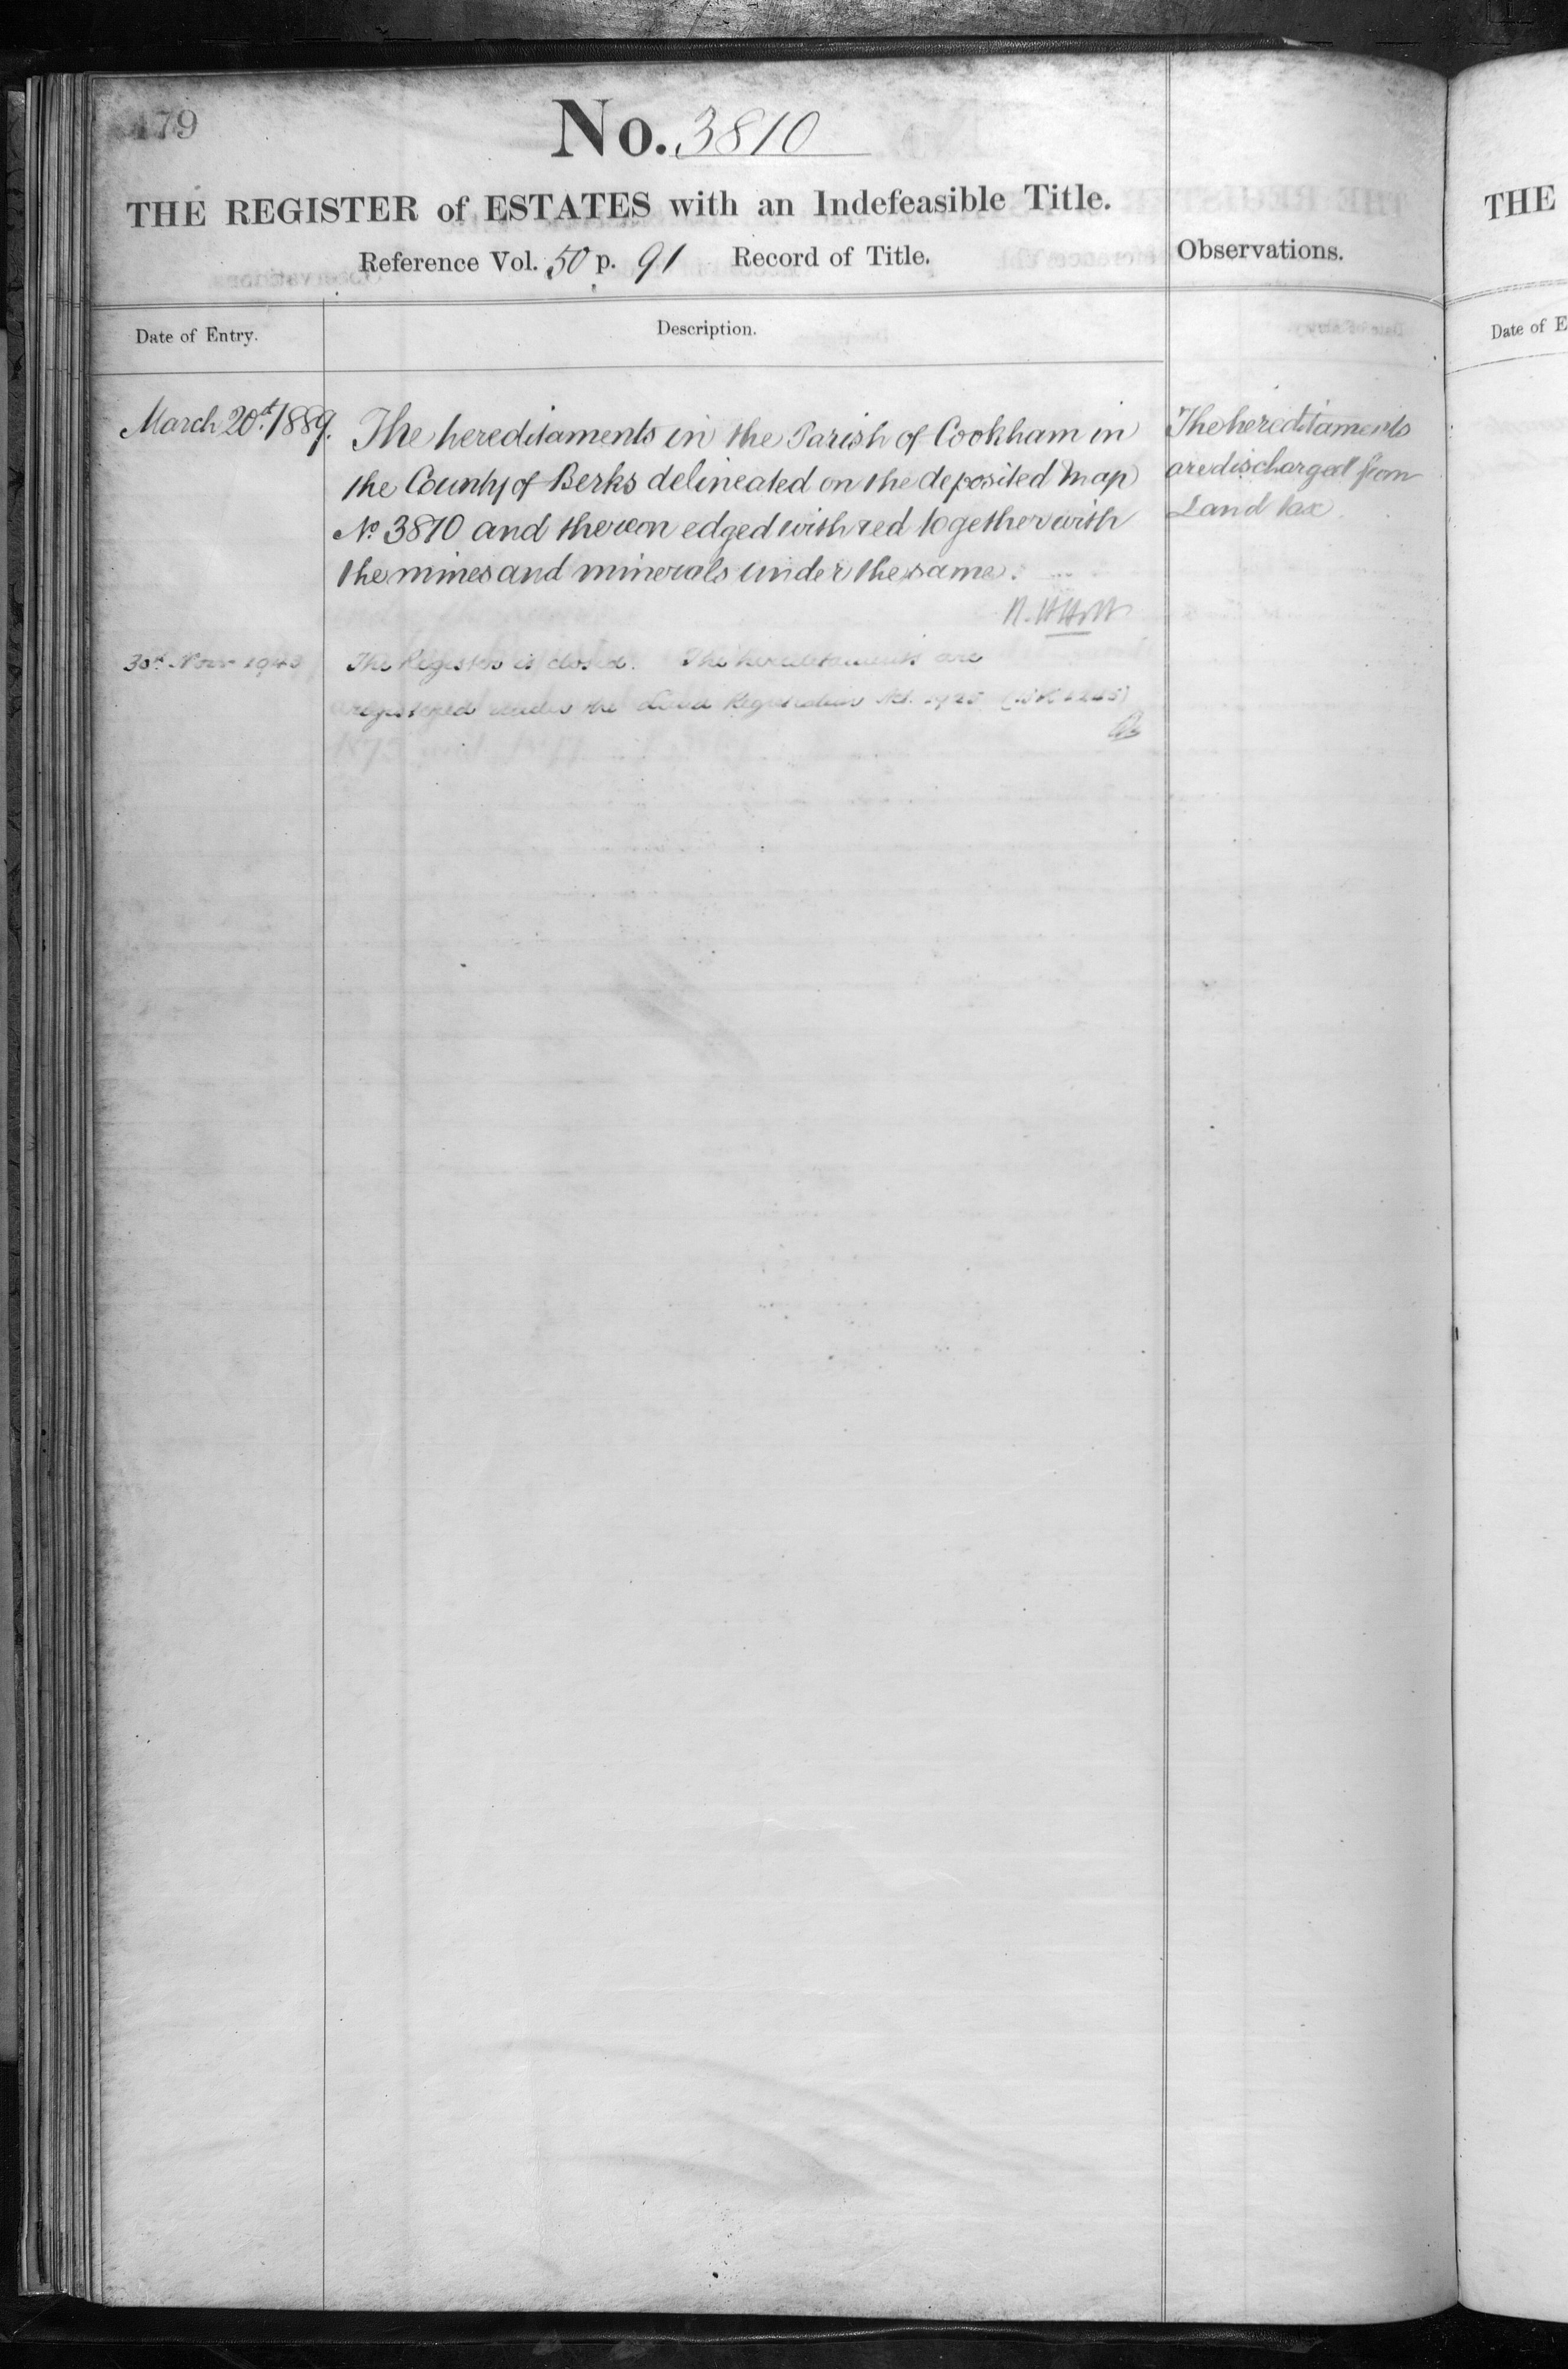 179
No. 3810
THE REGISTER of ESTATES with an Indefeasible Title.
Reference Vol. 50 p. 91 Record of Title.
Observations.
Date of Entry.
Description.
March 20th 1889.
The hereditaments in the Parish of Cookham in
the County of Berks delineated on the deposited Map
No 3810 and thereon edged with red together with
the mines and minerals under the same.
The hereditaments
are discharged from
Land tax
30th Novr 1943
The Register is closed. The hereditaments are
registered under the Land Registration Act. 1925
THE
Date of E